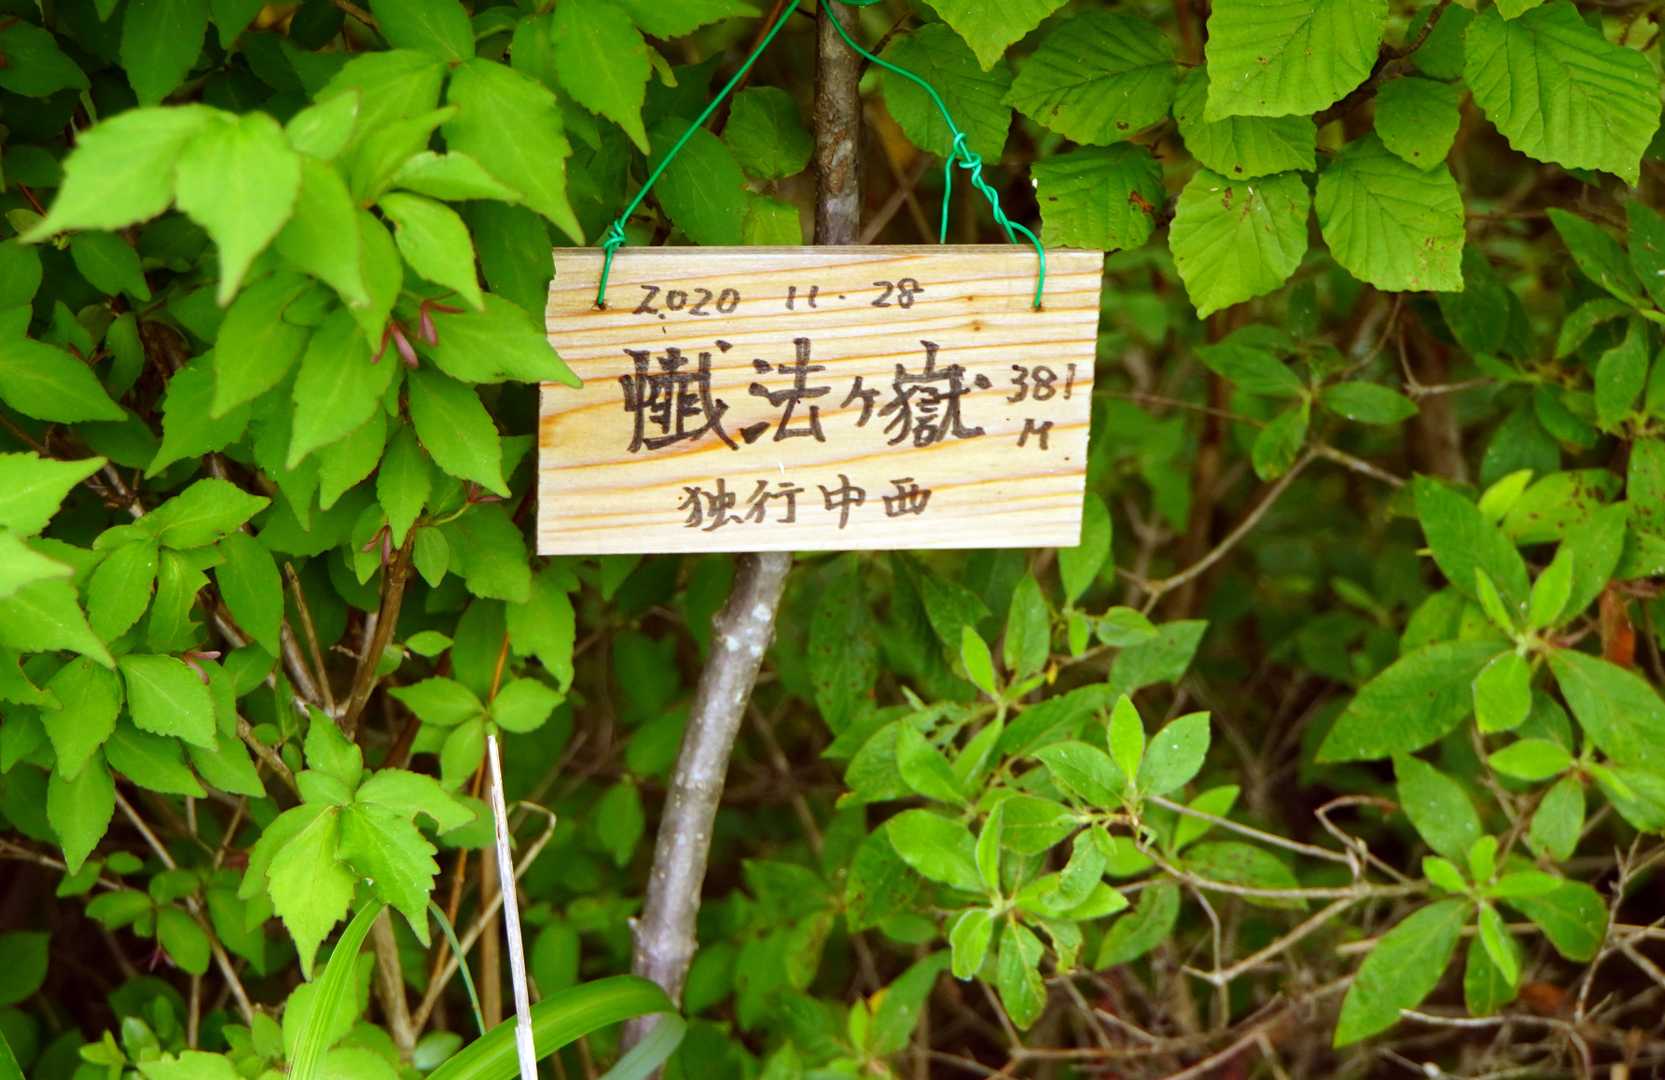 2020 11.28
懺法ヶ嶽 381M
独行中西